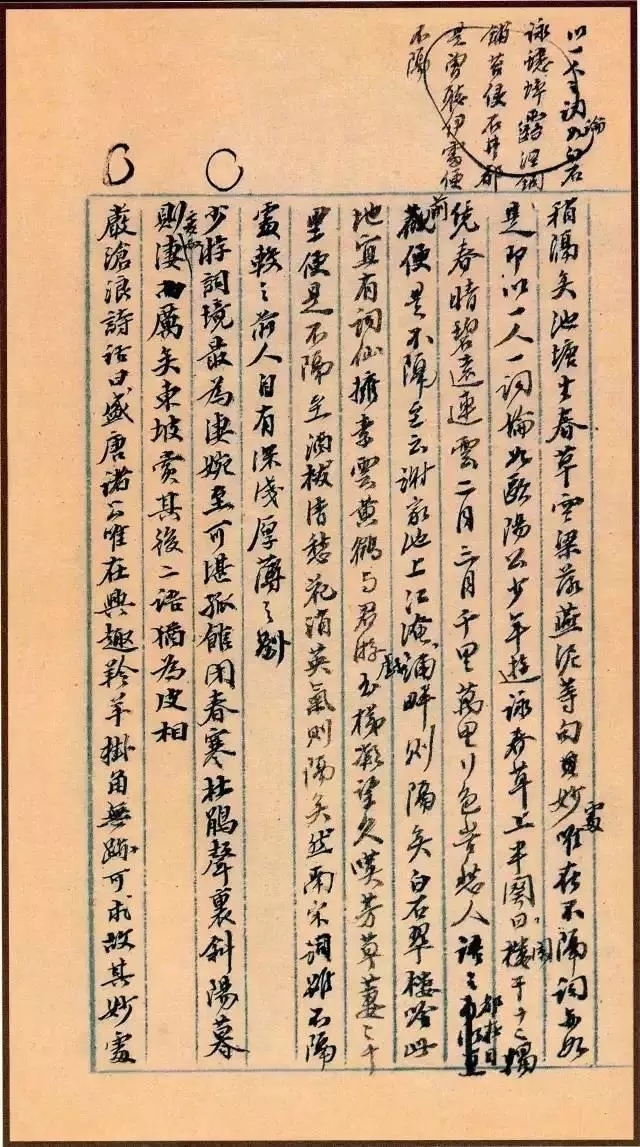 以一人之詞論如白石
詠蟋蟀露溼銅
鋪苔侵石井都
是曾聽伊處便
不隔
稍隔矣池塘生春草空梁落燕泥等句妙處唯在不隔詞亦如
是即以一人一詞論如歐陽公少年遊詠春草上半闋曰闌干十二獨
凭春晴碧遠連雲二月三月千里萬里行色苦愁人語語都在目
前便是不隔至云謝家池上江淹浦畔則隔矣白石翠樓吟此
地宜有詞仙擁素雲黃鶴与君游戲玉梯凝望久嘆芳草萋萋千
里便是不隔至酒祓清愁花消英氣則隔矣然南宋詞雖不隔
處較之前人自有深淺厚薄之別
少游詞境最為淒婉至可堪孤館閉春寒杜鵑聲裏斜陽暮
則變而淒厲矣東坡賞其後二語猶為皮相
嚴滄浪詩話曰盛唐諸公唯在興趣羚羊掛角無跡可求故其妙處